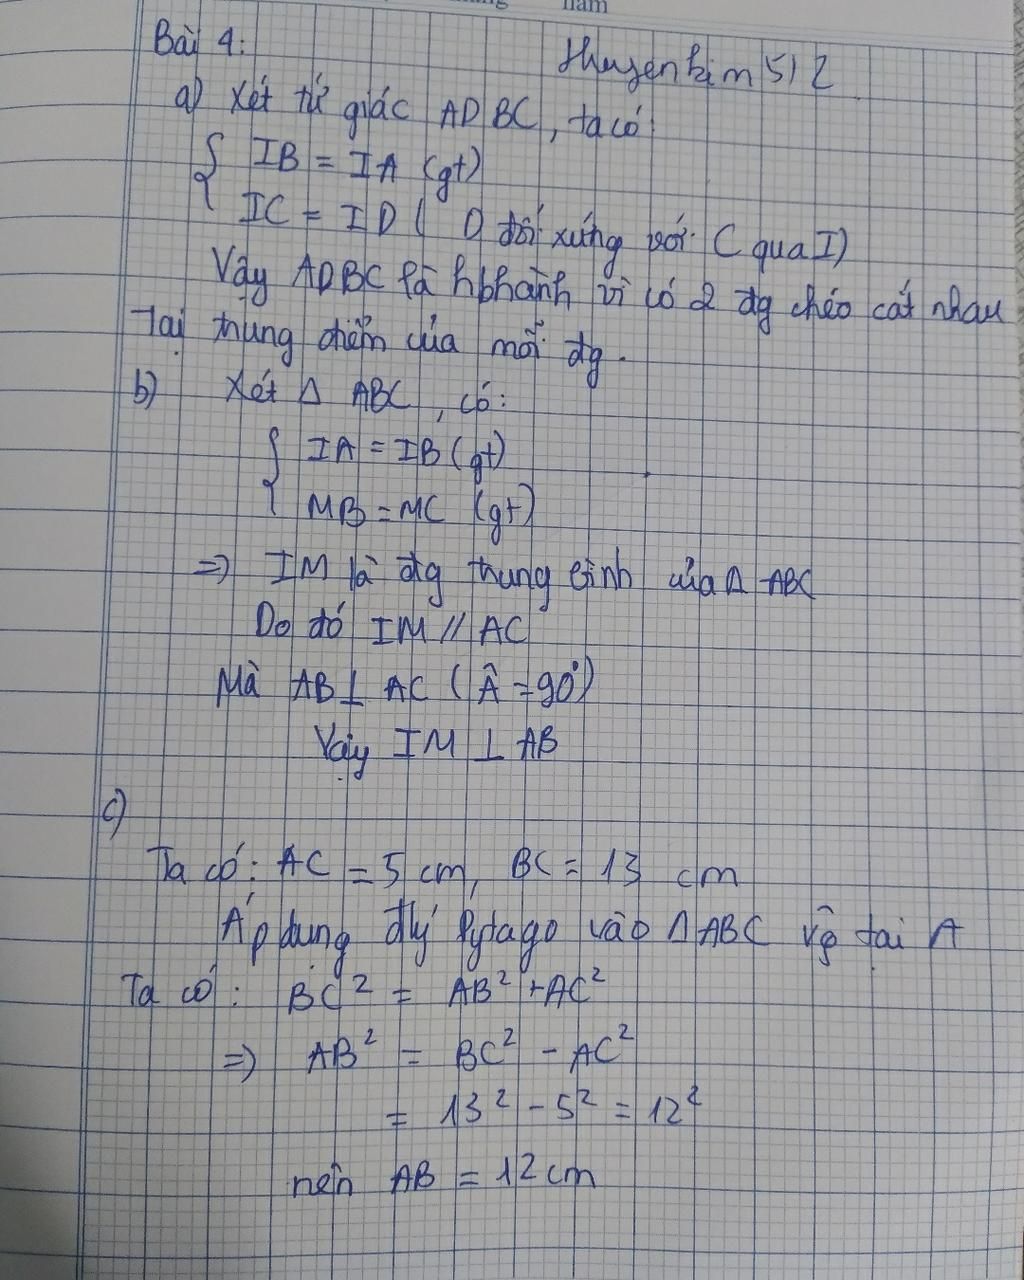 năm
Bài 4: thuyenkim512
a) Xét tứ giác ADBC, ta có:
{ IB = IA (gt)
IC = ID ( D đối xứng với C qua I)
Vậy ADBC là hbhành vì có 2 đg chéo cắt nhau
Tại trung điểm của mỗi đg.
b) Xét Δ ABC, có:
{ IA = IB (gt)
MB = MC (gt)
=> IM là đg trung bình của Δ ABC
Do đó IM // AC
Mà AB ⊥ AC ( Â = 90°)
Vậy IM ⊥ AB
c)
Ta có: AC = 5 cm, BC = 13 cm
Áp dụng đlý Pytago vào Δ ABC vg tại A
Ta có: BC² = AB² + AC²
=> AB² = BC² - AC²
= 13² - 5² = 12²
nên AB = 12 cm